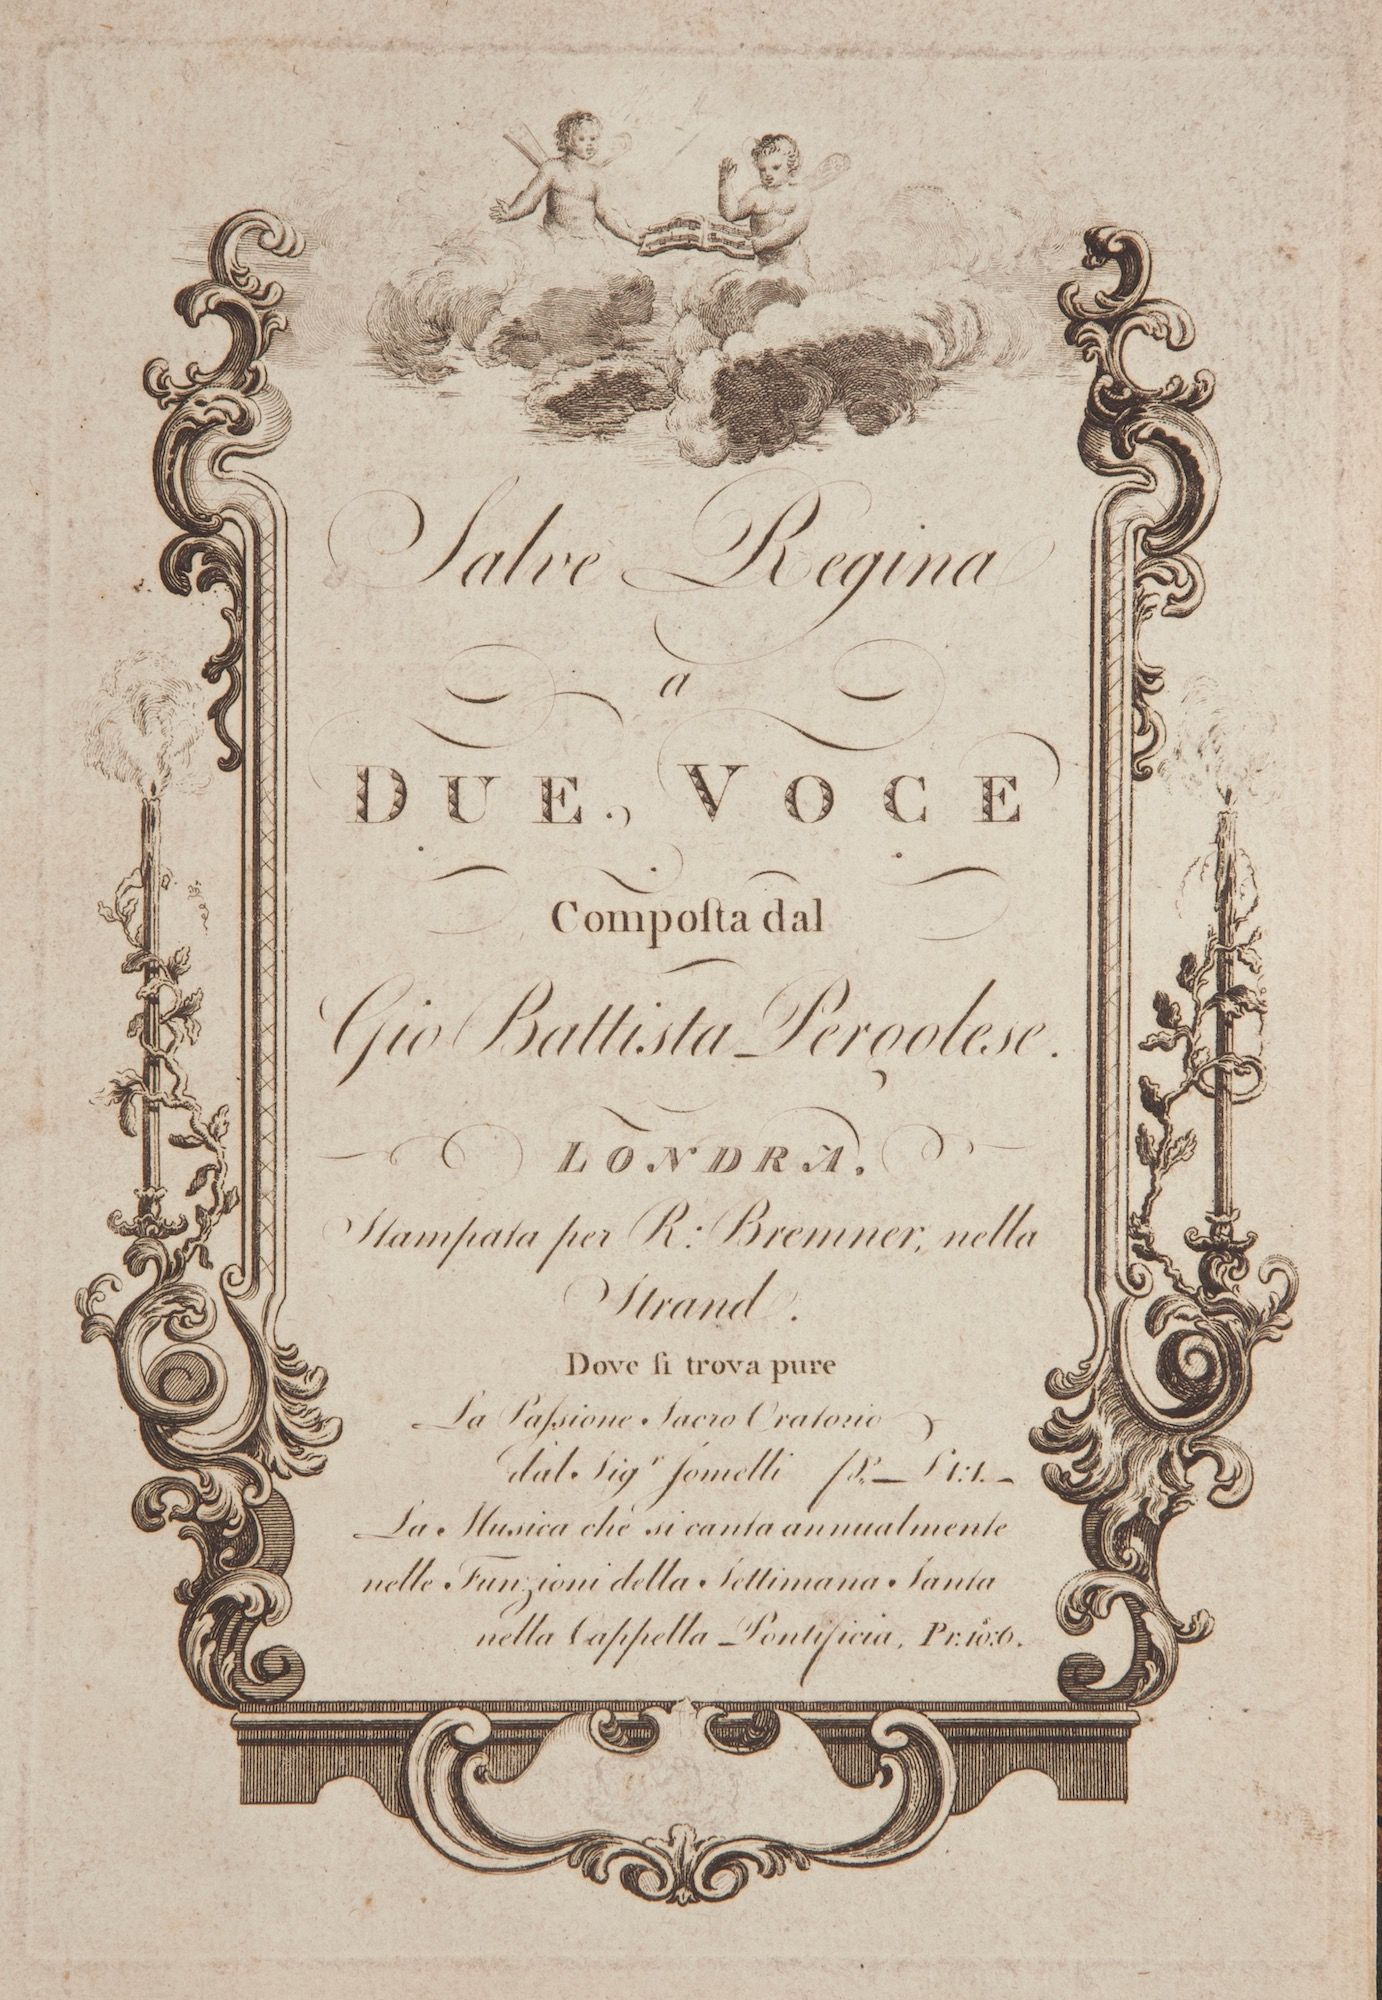 Salve Regina
a
DUE, VOCE
Compoſta dal
Gio Battista Pergolese.
LONDRA.
Stampata per R. Bremner, nella
Strand.
Dove ſi trova pure
La Paſsione Sacro Oratorio
dal Sigr Jomelli
La Musica che si canta annualmente
nelle Funzioni della Settimana Santa
nella Cappella Pontificia, Pr. 10:6.